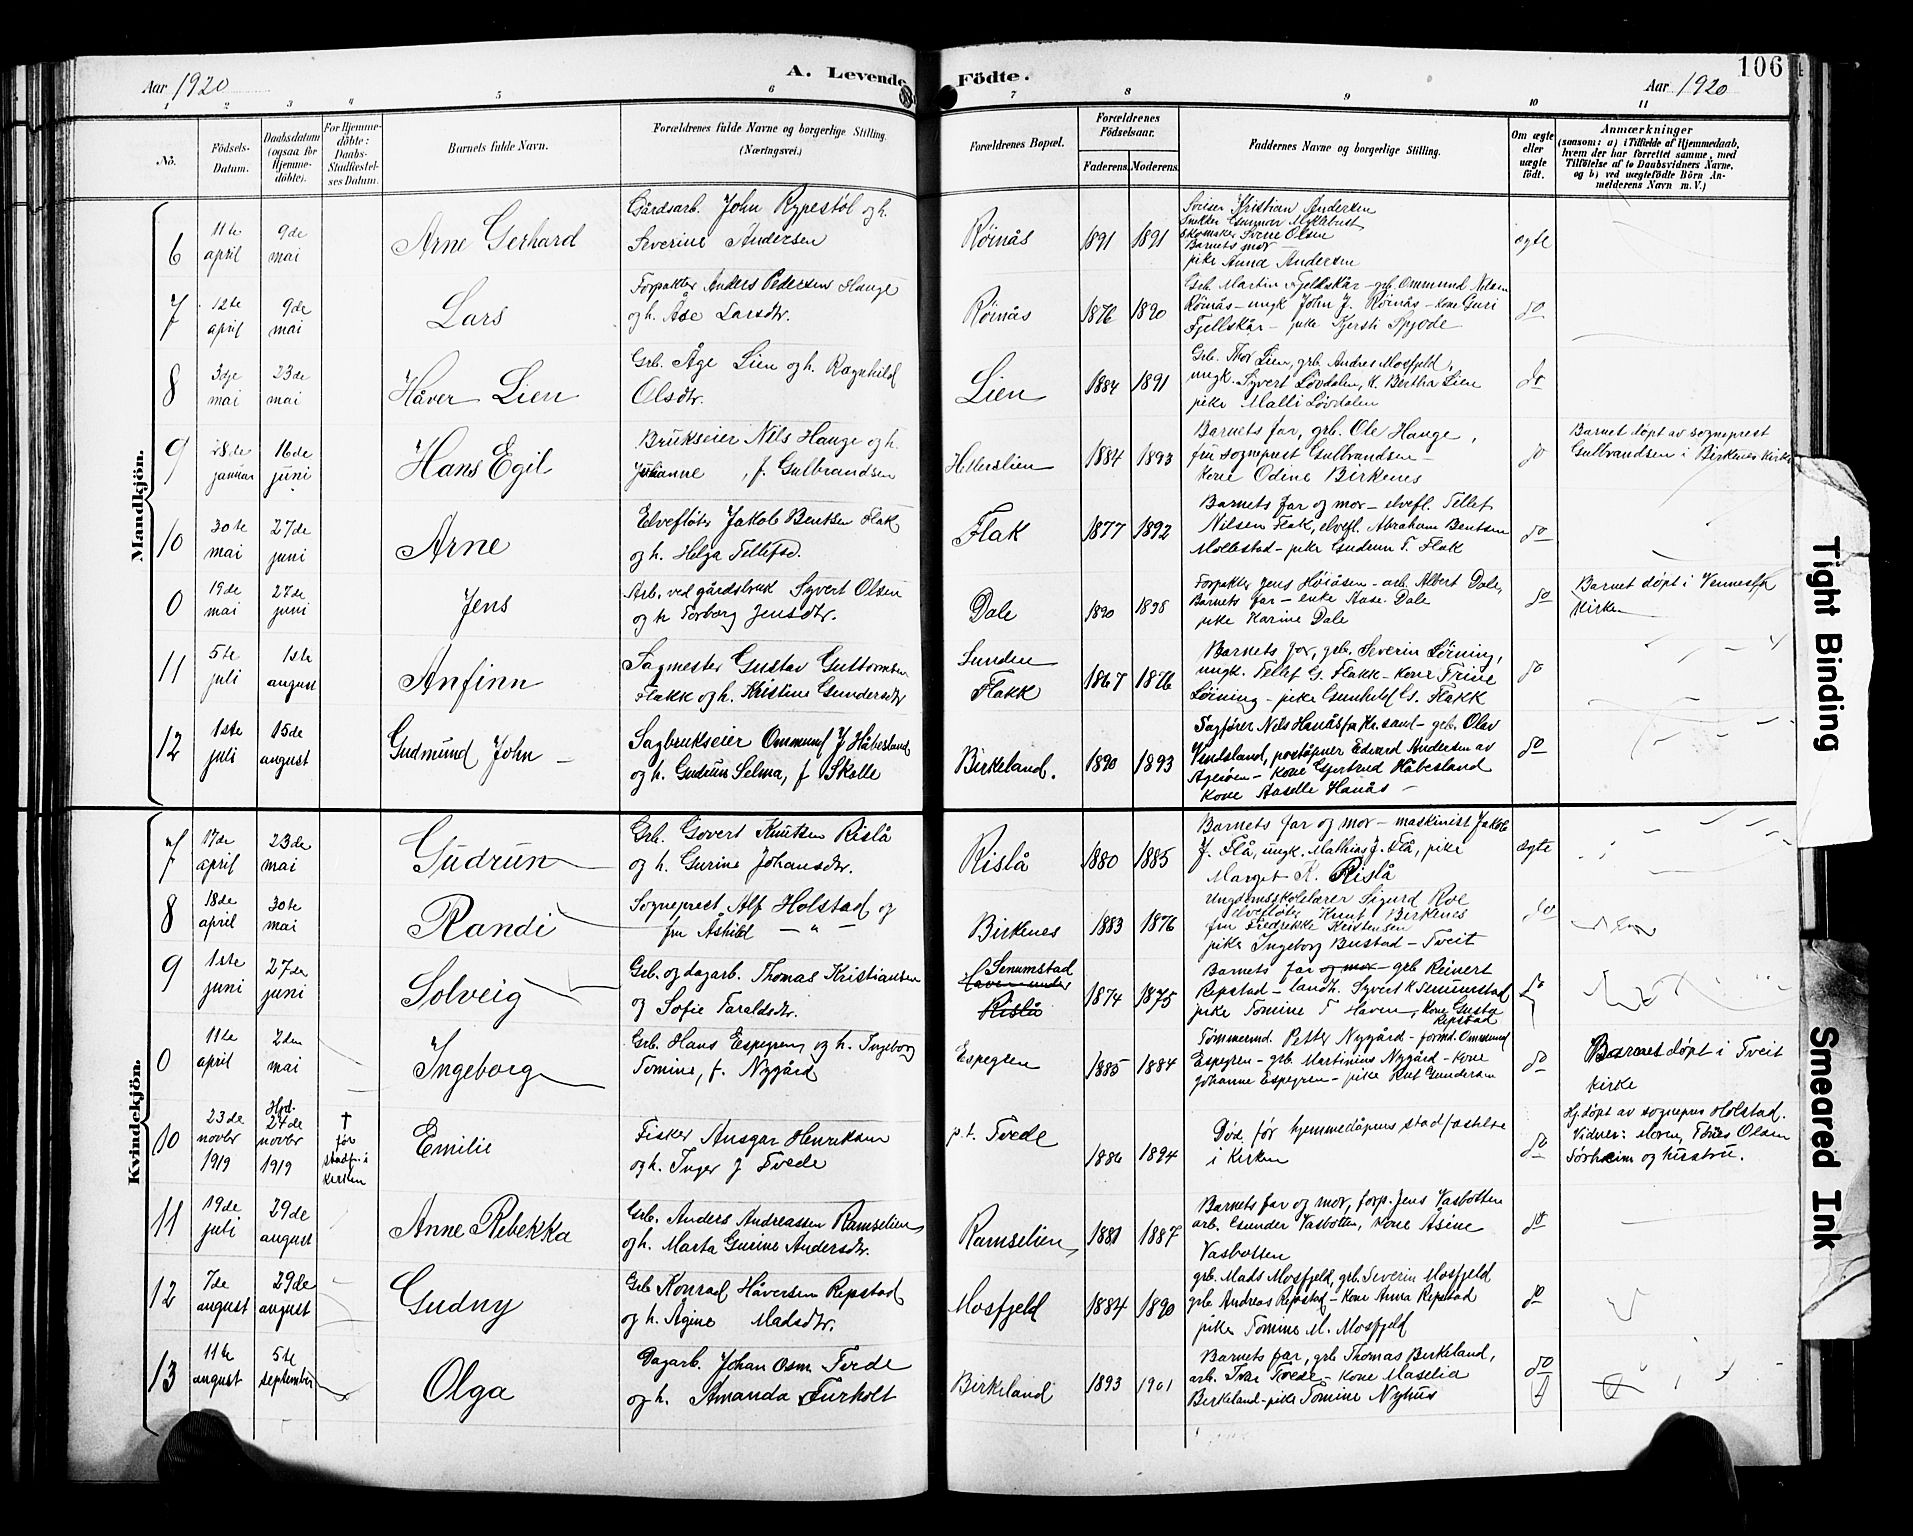 Aar 1920
A. Levende
Födte.
106
Aar 1920
1 2 3 4 5 6 7 8 9 10 11
No.
Födsels-
Datum.
Daabsdatum
(ogsaa for
Hjemme-
döbte).
For Hjemme-
döbte:
Daabs-
Stadfæstel-
ses Datum.
Barnets fulde Navn.
Forældrenes fulde Navne og borgerlige Stilling.
(Næringsvei.)
Forældrenes Bopæl.
Forældrenes
Födselsaar.
Faderens. Moderens.
Faddernes Navne og borgerlige Stilling.
Om ægte
eller
uægte
födt.
Anmærkninger
(saasom: a) i Tilfælde af Hjemmedaab,
hvem der har forrettet samme, med
Tilföielse af to Daabsvidners Navne,
og b) ved uægtefödte Börn An-
melderens Navn m. V.)
Mandkjön.
6
11te
april
9de
mai
Arne Gerhard
Gårdsarb. John Rypestöl og h.
Severine Andersen
Röinås
1891 1891
Sveiser Kristian Andersen
Snekker Gunnar Myklebust
Skomaker Svene Olsen
Barnets mor
pike Anna Andersen
ægte
7
12te
april
9de
mai
Lars
Forpakter Anders Pedersen Hauge
og h. Åse Larsdtr.
Röinås
1876 1890
Grb. Martin Fjeldskår - grb. Ommund Nilsen
Röinås - ungk John J. Röinås - kone Guri
Fjellskår - pike Kjersti Spjode
do
8
3dje
mai
23de
mai
Håver Lien
Grb. Åge Lien og h. Ragnhild
Olsdtr.
Lien
1884 1891
Grb. Thor Lien, grb. Andres Mosfjeld,
ungk. Syvert Lövdalen, k. Bertha Lien
pike Malli Lövdalen
do
9
28de
januar
16de
juni
Hans Egil
Brukseier Nils Hauge og h.
Julianne , f. Gulbrandsen
Hellerslien
1884 1893
Barnets far, grb. Ole Hauge,
fru sogneprest Gulbrandsen
kone Odine Birkenes
do
Barnet döpt av sogneprest
Gulbrandsen i Birkenes kirke
10
30te
mai
27de
juni
Arne
Elveflöter Jakob Bentsen Flak
og h. Helga Tellefsd.
Flak
1877 1892
Barnets far og mor - elvefl. Tellef
Nilsen Flak, elvefl. Abraham Bentsen
Mollestad - pike Gudrun T. Flak
do
0
19de
mai
27de
juni
Jens
Arb. ved gårdsbruk Syvert Olsen
og h Torborg Jensdtr.
Dale
1890 1898
Forpakter Jens Höiåsen - arb. Albert Dale,
Barnets far - enke Aase Dale
pike Karine Dale
do
Barnet döpt i Vennesla
kirken
11
5te
juli
1ste
august
Anfinn
Sagmester Gustav Guttormsen
Flakk og h. Kristine Gundersdtr
Sunden
Flakk
1867 1876
Barnets far, grb. Severin Lörning,
ungk. Tellef G. Flakk - kone Trine
Lörning - pike Gunhild G. Flakk
do
12
1ste
juli
15de
august
Gudmund John
Sagbrukseier Ommund J Håbesland
og h. Gudrun Selma, f Skolle
Birkeland.
1890 1893
Sagförer Nils Hanås fra Kr.sand - grb. Olav
Vindsland, poståpner Edvard Andersen av
Ageröen - kone Gjertrud Håbesland
kone Aaselle Hanås
do
Kvindekjön.
7
17de
april
23de
mai
Gudrun
Grb. Govert Knutsen Rislå
og h. Gurine Johansdtr.
Rislå
1880 1885
Barnets far og mor - maskinist Jakob
J. Flå, ungk. Mathias J. Flå, pike
Marget K. Rislå
ægte
8
18de
april
30te
mai
Randi
Sogneprest Alf Holstad og
fru Åshild - " -
Birkenes
1883 1876
Ungdomsskolelærer Sigurd Roe
elveflöter Knut Birkenes
fru Fredrikke Kristensen
pike Ingeborg Bustad - Tveit
do
9
1ste
juni
27de
juni
Solveig
Grb. og dagarb. Thomas Kristiansen
og Sofie Taraldsdtr.
Senumstad
Haven under
Rislå
1874 1875
Barnets far og mor - grb Reinert
Repstad - landh. Syvert K Senumstad
pike Tomine T Haven, kone Gusta
Repstad
do
0
11te
april
2den
mai
Ingeborg
Grb. Hans Espegren og h. Ingeborg
Tomine, f. Nygård
Espegren
1885 1884
Tömmermd. Petter Nygård - formd. Ommund
Espegren - grb. Martinius Nygård - kone
Johanne Espegren - pike Knt Gundersen
do
Barnet döpt i Tveit
kirke
10
23de
novbr
1919
Hjd.
24de
novbr
1919
†
för
stadf. i
kirken
Emilie
Fisker Ansgar Henriksen
og h. Inger J Tvede
p.t. Tvede
1886 1894
Död för hjemmedåpens stadfæstelse
i kirken
do
Hj. döpt av sogneprs Holstad.
Vidner: Moren, Tönes Olsen
Törheim og hustru.
11
19de
juli
29de
august
Anne Rebekka
Grb. Anders Andreassen Ramselien,
og h. Marta Gurine Andersdtr.
Ramselien,
1881 1887
Barnets far og mor, forp. Jens Vasbotten
arb. Gunder Vasbotten, kone Åsine
Vasbotten
do
12
7de
august
29de
august
Gudny
Grb Konrad Håversen Repstad
og h. Agine Madsdtr.
Mosfjeld
1884 1890
grb. Mads Mosfjeld, grb. Severin Mosfjeld
grb Andreas Repstad - kone Anna Repstad
pike Tomine M. Mosfjeld
do
13
11te
august
5te
september
Olga
Dagarb. Johan Osm Tvede
og h. Amanda Furholt
Birkeland
1893 1901
Barnets far, grb Thomas Birkeland,
arb. Ivar Tvede - kone Maselia
Birkeland - pike Tomine Nyhus
do
Tight Binding
Smeared Ink